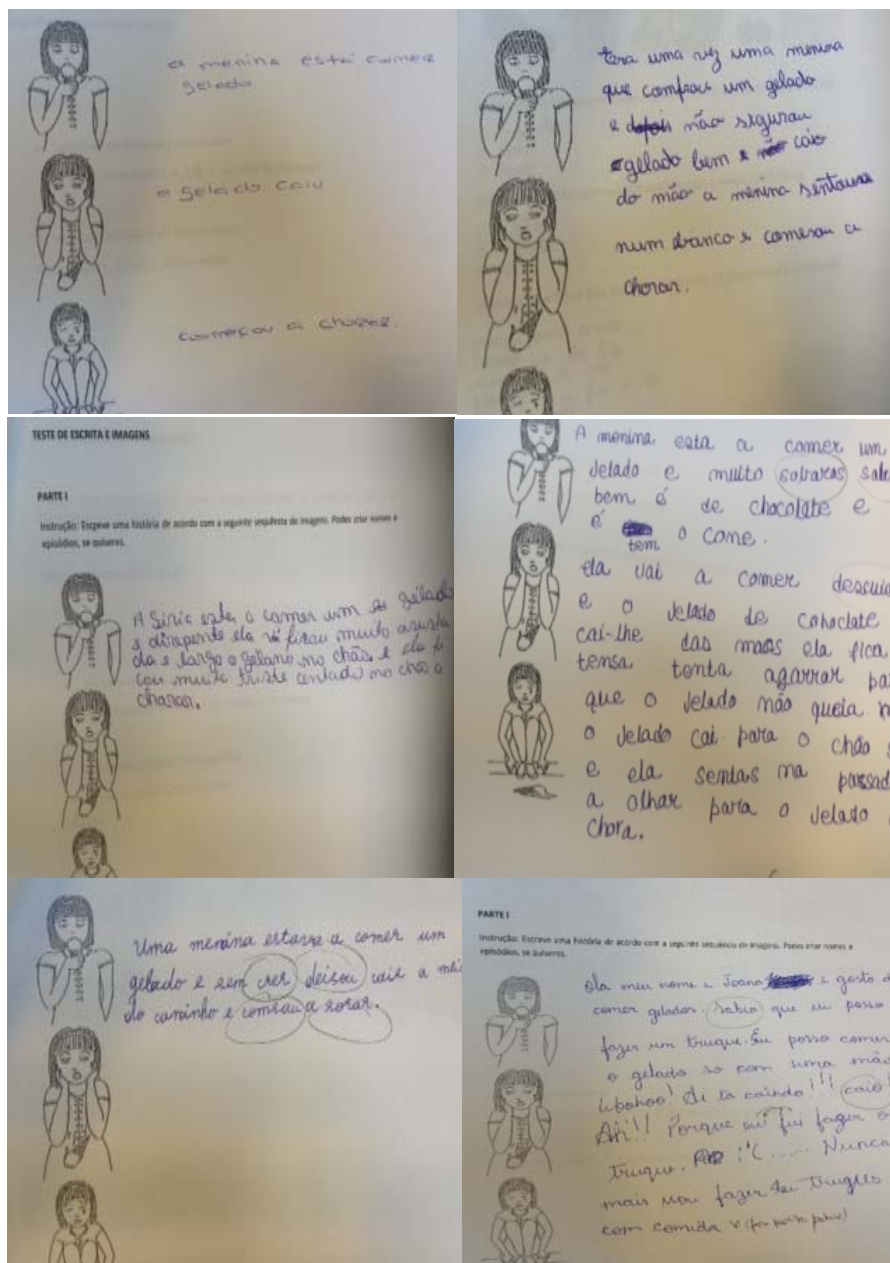 a menina está comer
gelado
o gelado caiu
começou a chorar.
Era uma vez uma menina
que comprou um gelado
e depois não segurou
o gelado bem e não caio
do mão a menina sentouse
num branco e comesou a
chorar.
TESTE DE ESCRITA E IMAGENS
PARTE I
Instrução: Escreve uma história de acordo com a seguinte sequência de imagens. Podes criar nomes e
episódios, se quiseres.
A Siria esta a comer um gelado
e direpente ela ficou muito asusta
da e largo o gelano no chão e ela fi
cou muito triste centado no chão a
charar.
A menina esta a comer um
Jelado e muito sobaras
bem é de chocolate e
é tem o cone.
ela vai a comer descuid
e o Jelado de cohoclate
cai-lhe das maos ela fica
tensa tenta agarrar pa
que o Jelado não queia
o Jelado cai para o chão
e ela sentas na passad
a olhar para o Jelado
chora.
Uma menina estava a comer um
gelado e sem crer deisou cair a mei
do caminho e comsou a xorar.
PARTE I
Instrução: Escreve uma história de acordo com a seguinte sequência de imagens. Podes criar nomes e
episódios, se quiseres.
Ola meu nome e Joano e gosto d
comer gelados. Sabia que eu posso
fazer um truque. Eu posso comer
o gelado so com uma mão
Wohoo! Oi ta caindo!!! caio!
Ah!! Porque eu fui fazer o
truque. :'( ...... Nunca
mais vou fazer truques
com comida